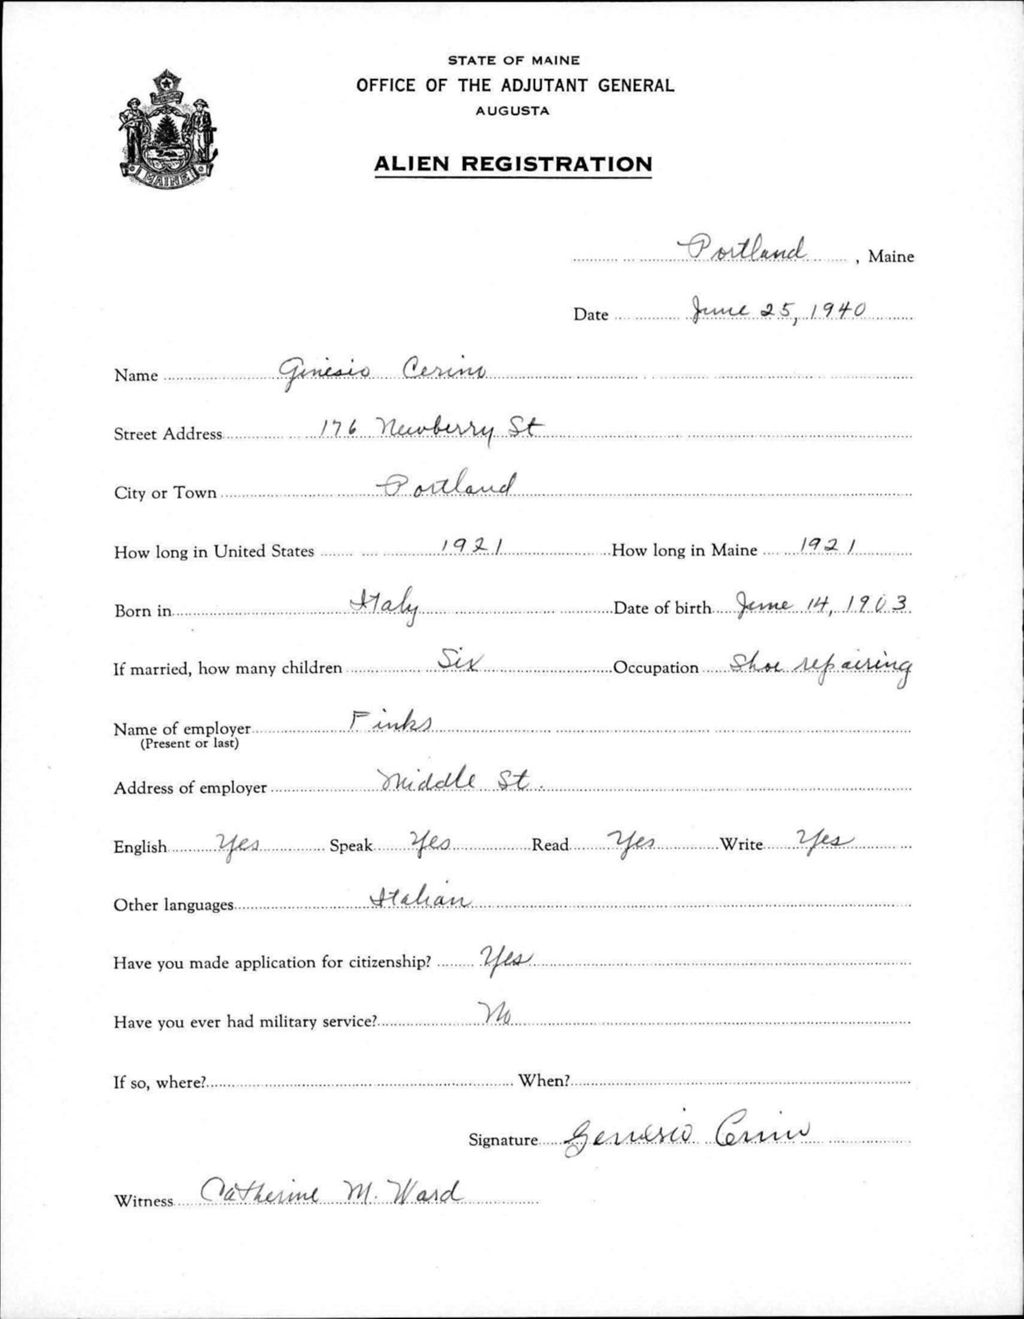 STATE OF MAINE
OFFICE OF THE ADJUTANT GENERAL
AUGUSTA
ALIEN REGISTRATION
MAINE
Portland, Maine
Date June 25, 1940
Name Ginesio Cerino
Street Address 176 Newberry St
City or Town Portland
How long in United States 1921 How long in Maine 1921
Born in Italy Date of birth June 14, 1903
If married, how many children Six Occupation Shoe repairing
Name of employer Finks
(Present or last)
Address of employer Middle St.
English Yes Speak Yes Read Yes Write Yes
Other languages Italian
Have you made application for citizenship? Yes
Have you ever had military service? No
If so, where? When?
Signature Genesio Cerino
Witness Catherine M. Ward